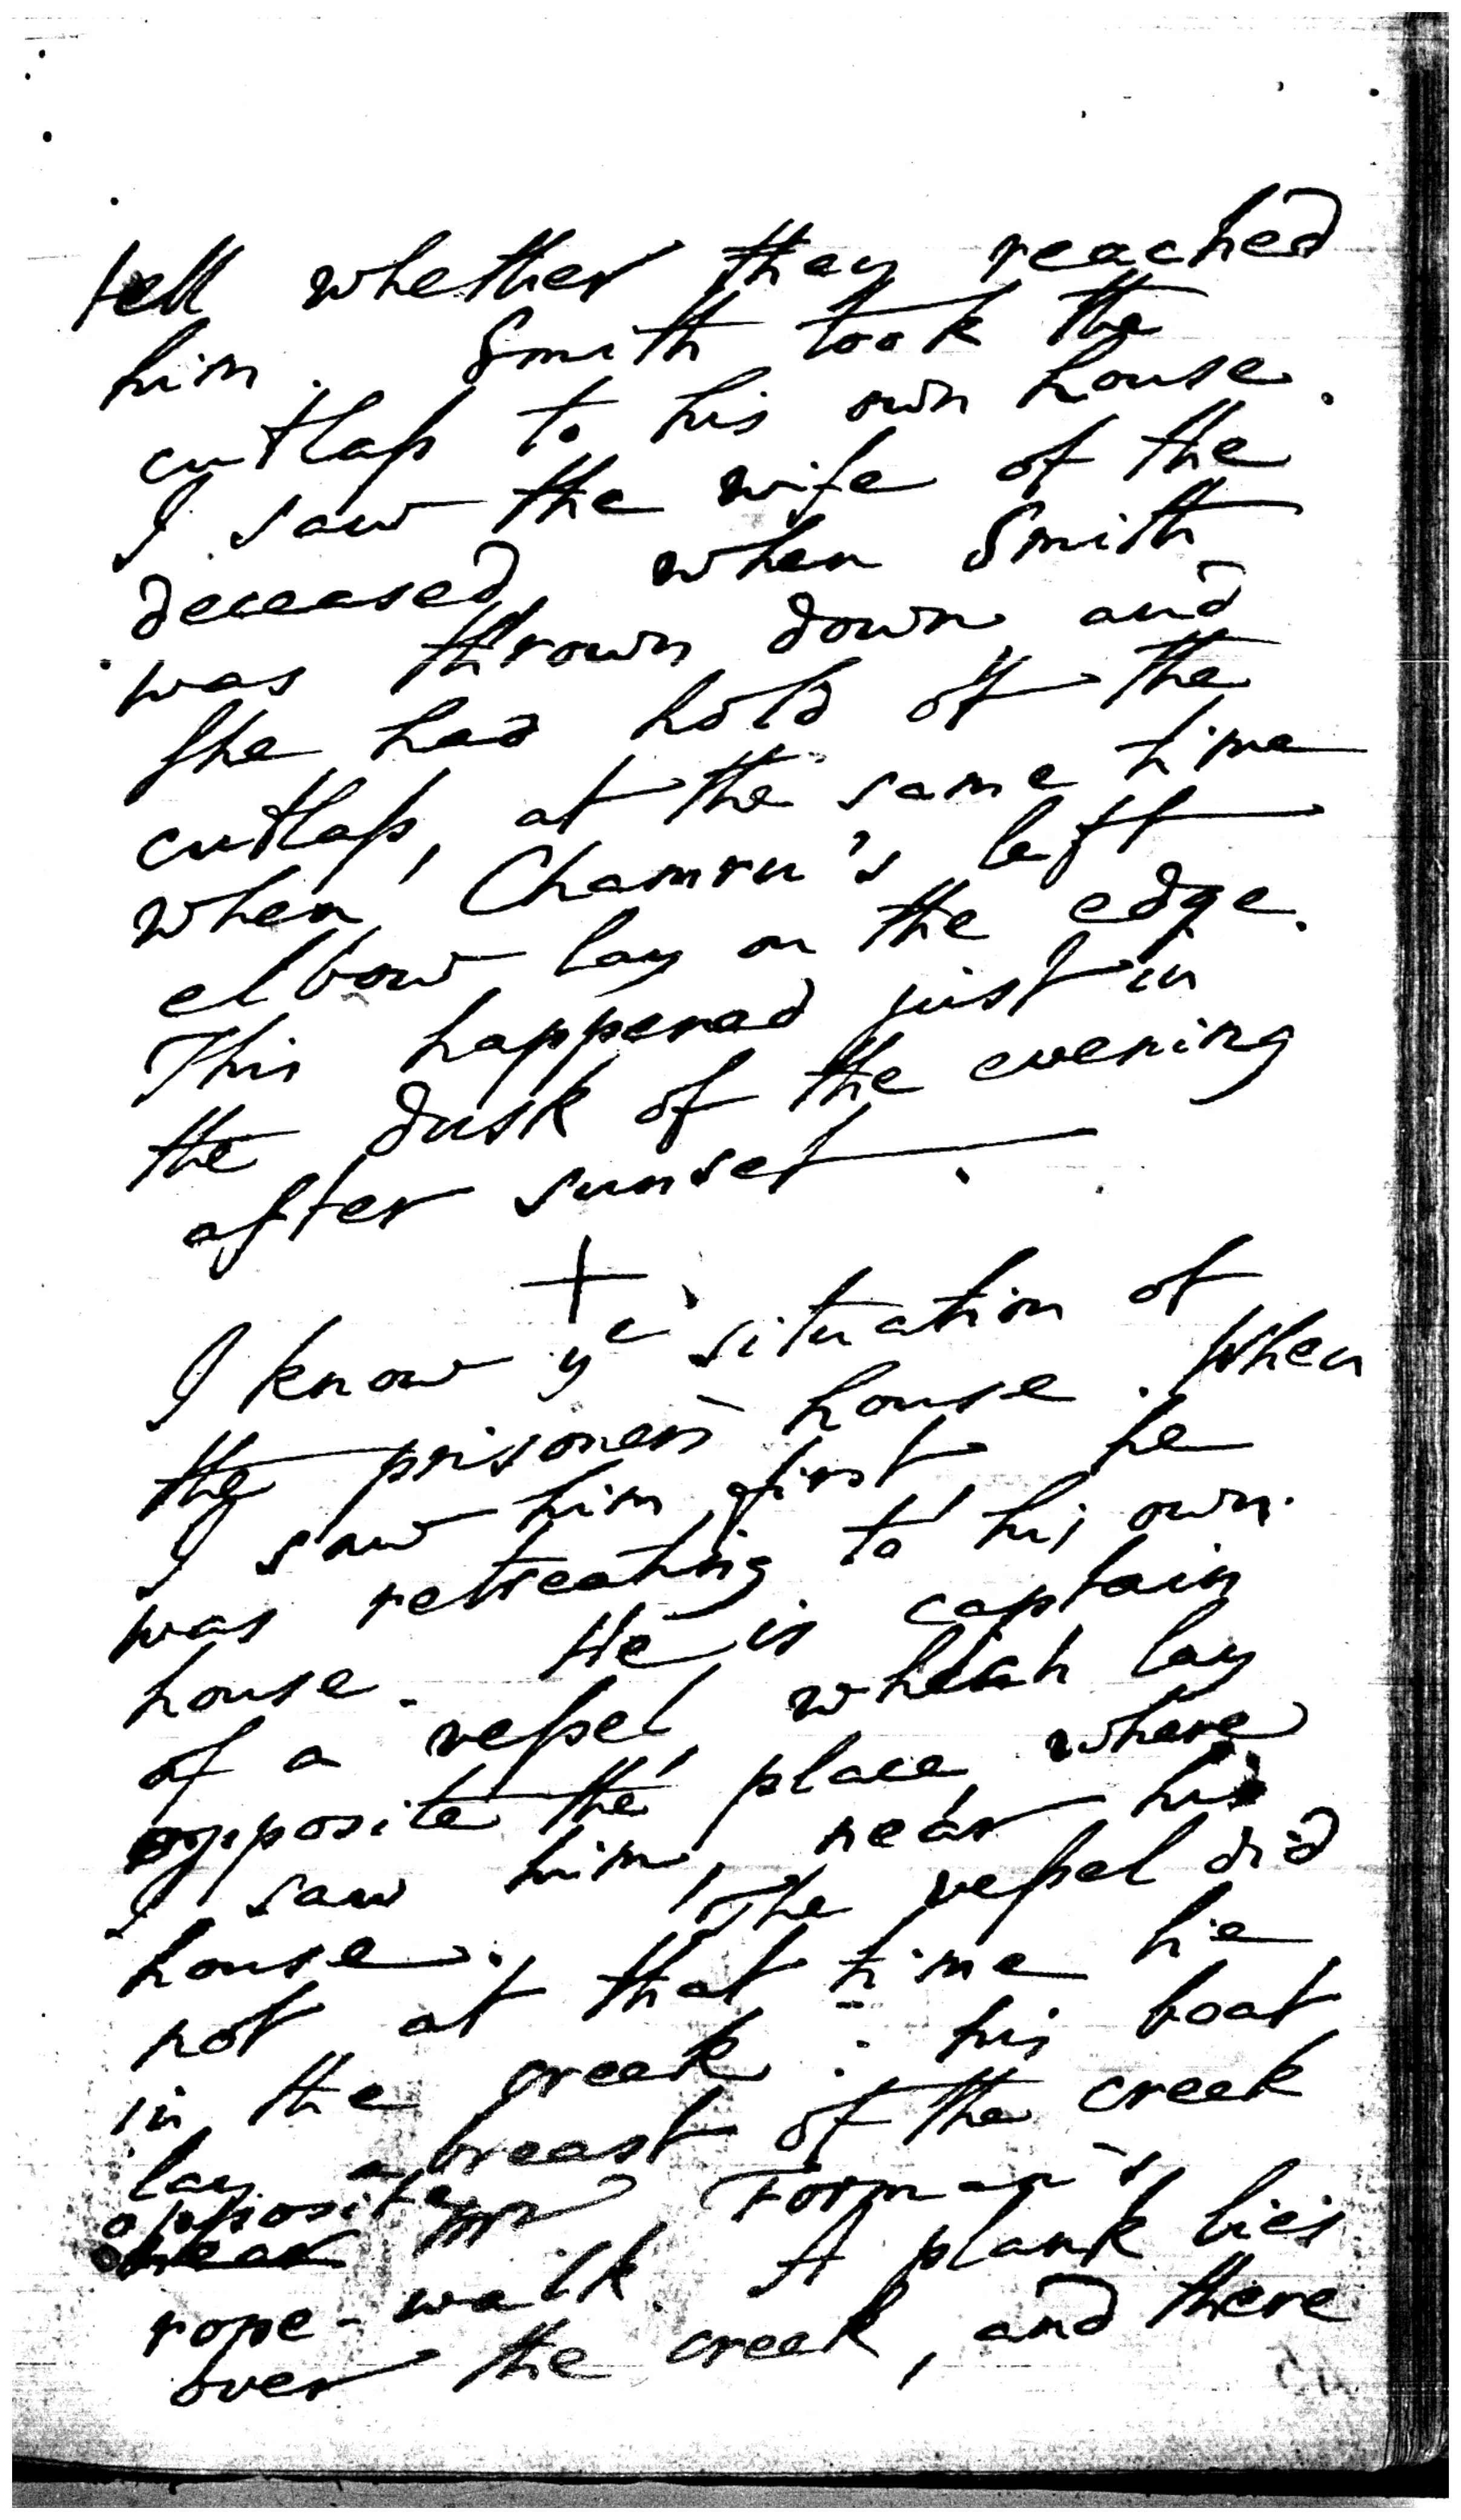 tell whether they reached
him. Smith took the
cutlaſs to his own house.
I saw the wife of the
deceased, when Smith
was thrown down and
ſhe had hold of the
cutlaſs, at the same time
when Chamru's left
elbow lay on the edge.
This happened just in
the dusk of the evening
after sunset.
+
I know yᵉ situation of
the prisoner's house. When
I saw him first he
was retreating to his own
house. He is captain
of a veſsel, which lay
opposite the place, where
I saw him, near his
house. The veſsel did
not at that time lie
in the creek: his boat
lay abreast of the creek
opposite
near Mr Forman's
rope-walk. A plank lies
over the creek, and there